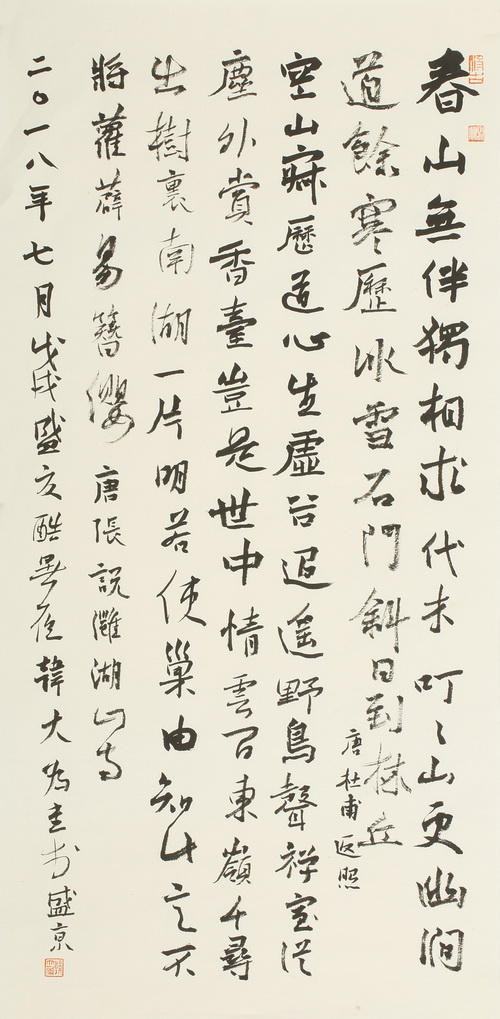 春山無伴獨相求代未叮〻山更幽澗
道餘寒歷冰雪石門斜日到林丘
唐杜甫返照
空山寂歷道心生虛谷迢遥野鳥聲禅室從
塵外賞香臺豈是世中情雲間東嶺千尋
出樹裏南湖一片明若使巢由知此意不
將蘿薜易簪纓唐張説灉湖山寺
二〇一八年七月戊戌盛夏酷暑韓大为書於盛京